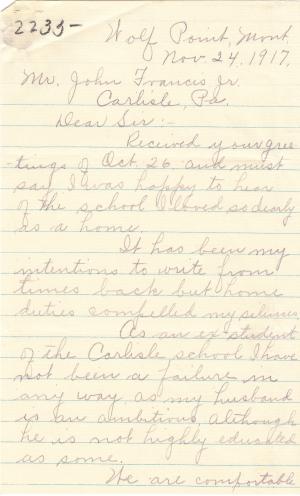 2235-
Wolf Point, Mont.
Nov. 24, 1917.
Mr. John Francis Jr.
Carlisle, Pa.
Dear Sir:-
Received your gree
-tings of Oct. 26 and must
say I was happy to hear
of the school I loved so dearly
as a home.
It has been my
intentions to write from
times back but home
duties compelled my silence.
As an ex-student
of the Carlisle school I have
not been a failure in
any way, as my husband
is an ambitious, although
he is not highly educated
as some.
We are comfortable